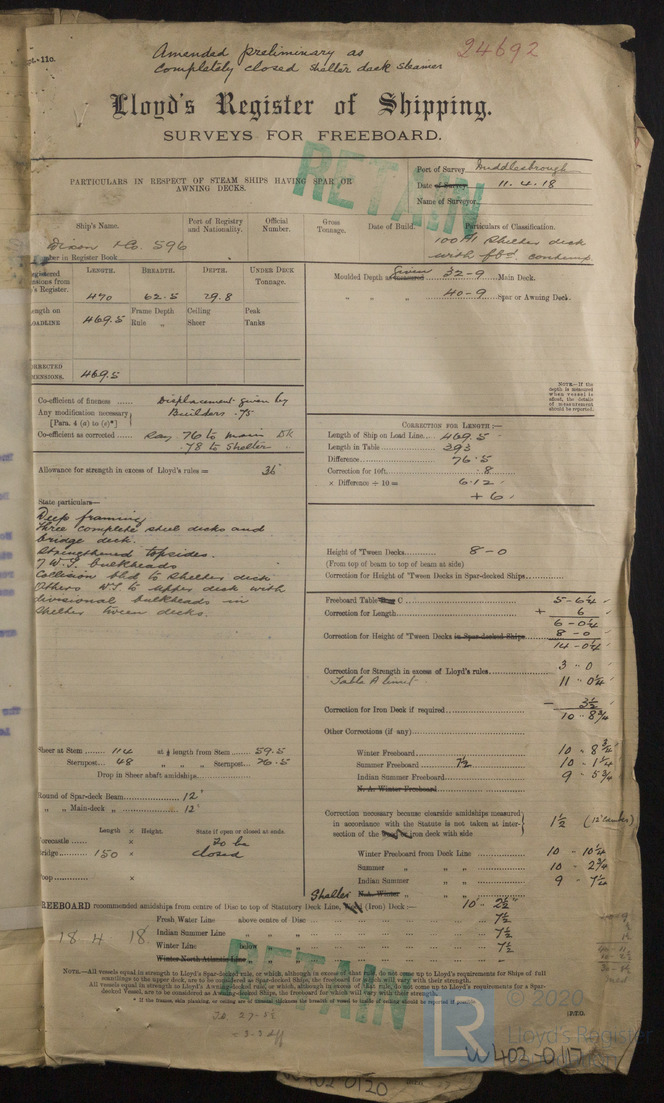 Amended preliminary as
completely closed shelter deck steamer
24692
pt.-11o.
Lloyd's Register of Shipping.
SURVEYS FOR FREEBOARD.
RETAIN
PARTICULARS IN RESPECT OF STEAM SHIPS HAVING SPAR OR
AWNING DECKS.
Port of Survey Middlesbrough
Date of Survey 11.4.18
Name of Surveyor
Ship's Name. Port of Registry and Nationality. Official Number. Gross Tonnage. Date of Build. Particulars of Classification.
Dixon & Co. 596
100 A1 Shelter deck
with fbd. contemp.
mber in Register Book
egistered
nsions from
's Register.
LENGTH. BREADTH. DEPTH. UNDER DECK TONNAGE.
470 62.5 29.8
Moulded Depth as measured Given 32-9 Main Deck.
" " " 40-9 Spar or Awning Deck.
ength on
LOADLINE
469.5 Frame Depth Rule " Ceiling Sheer Peak Tanks
ORRECTED
MENSIONS. 469.5
NOTE—If the depth is measured when vessel is afloat, the details of measurement should be reported.
Co-efficient of fineness Displacement given by
Any modification necessary Builders .75
[Para. 4 (a) to (e)*]
Co-efficient as corrected Say .76 to main Dk
.78 to Shelter
Allowance for strength in excess of Lloyd's rules = 36
CORRECTION FOR LENGTH:—
Length of Ship on Load Line 469.5
Length in Table 393
Difference 76.5
Correction for 10ft. .8
× Difference ÷ 10 = 6.12
+ 6
State particulars—
Deep framing
Three complete steel decks and
bridge deck.
Strengthened topsides.
7 W.T. bulkheads
Collision bhd to Shelter deck
Others W.T. to upper deck with
divisional bulkheads in
Shelter tween decks.
Height of 'Tween Decks 8-0
(From top of beam to top of beam at side)
Correction for Height of 'Tween Decks in Spar-decked Ships
Freeboard Table C 5-6¼
Correction for Length + 6
6-0¼
Correction for Height of 'Tween Decks in Spar-decked Ships 8-0
14-0¼
Correction for Strength in excess of Lloyd's rules 3-0
Table A limit 11-0¼
Correction for Iron Deck if required - 3½
10-8¾
Other Corrections (if any)
Sheer at Stem 114 at ⅛ length from Stem 59.5
Sternpost 48 " " " Sternpost 26.5
Drop in Sheer abaft amidships
Winter Freeboard 10-8¾
Summer Freeboard 7½ 10-1¼
Indian Summer Freeboard 9-5¾
N. A. Winter Freeboard
Round of Spar-deck Beam 12"
" " Main-deck " 12"
Length × Height. State if open or closed at ends.
orecastle × To be
ridge 150 × closed
oop ×
Correction necessary because clearside amidships measured
in accordance with the Statute is not taken at inter-
section of the iron deck with side
1½ (12" camber)
Winter Freeboard from Deck Line 10-10¼
Summer " " " 10-2¾
Indian Summer " " " 9-7¼
N.A. Winter " " "
REEBOARD recommended amidships from centre of Disc to top of Statutory Deck Line, Shelter (Iron) Deck:— 10-2½"
Fresh Water Line above centre of Disc 7½
Indian Summer Line " " " 7½
18 4 18 Winter Line below " " 7½
Winter North Atlantic Line " " " –
RETAIN
NOTE.—All vessels equal in strength to Lloyd's Spar-decked rule, or which, although in excess of that rule, do not come up to Lloyd's requirements for Ships of full
scantlings to the upper deck, are to be considered as Spar-decked Ships, the freeboard for which will vary with their strength.
All vessels equal in strength to Lloyd's Awning-decked rule, or which, although in excess of that rule, do not come up to Lloyd's requirements for a Spar-
decked Vessel, are to be considered as Awning-decked Ships, the freeboard for which will vary with their strength.
[P.T.O.
© 2020
Lloyd's Register
W402-0117
W402-0120